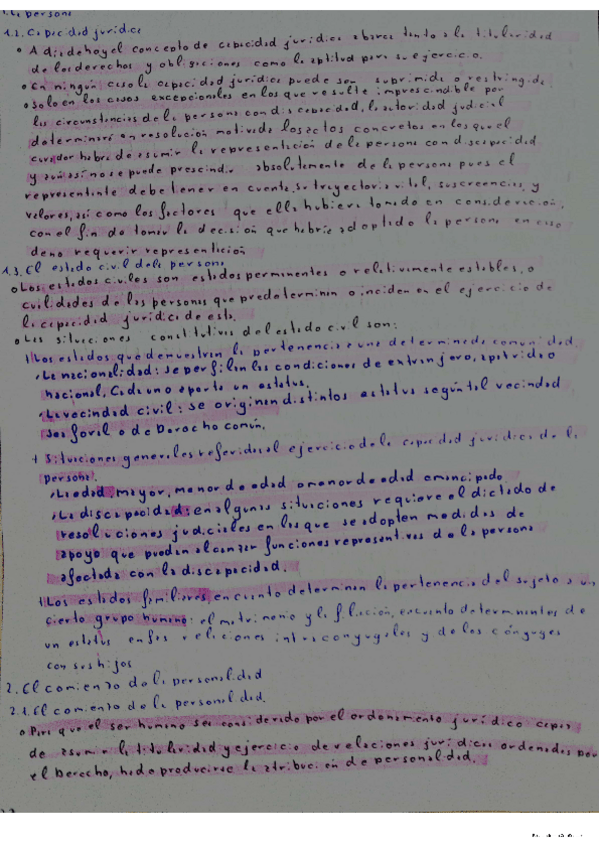 1.1. persona
1.2. Capacidad jurídica
A día de hoy el concepto de capacidad jurídica abarca tanto a la titularidad
de los derechos y obligaciones como la aptitud para su ejercicio.
En ningún caso la capacidad jurídica puede ser suprimida o restringida
Solo en los casos excepcionales en los que resulte imprescindible por
las circunstancias de la persona con discapacidad, la autoridad judicial
determinará en resolución motivada los actos concretos en los que el
curador habrá de asumir la representación de la persona con discapacidad
y aún así no se puede prescindir absolutamente de la persona pues el
representante debe tener en cuenta su trayectoria vital, sus creencias y
valores, así como los factores que ella hubiera tomado en consideración,
con el fin de tomar la decisión que habría adoptado la persona en caso
de no requerir representación
1.3. El estado civil de la persona
Los estados civiles son estados permanentes o relativamente estables, o
cualidades de las personas que predeterminan o inciden en el ejercicio de
la capacidad jurídica de esta.
Las situaciones constitutivas del estado civil son:
Los estados que demuestran la pertenencia a una determinada comunidad.
La nacionalidad: se perfilan las condiciones de extranjero, apátrida o
nacional. Cada uno aporta un estatus.
La vecindad civil: se originan distintos estatus según tal vecindad
sea foral o de Derecho común.
+ Situaciones generales referidas al ejercicio de la capacidad jurídica de la
persona.
La edad, mayor, menor de edad o menor de edad emancipado
La discapacidad: en algunas situaciones requiere el dictado de
resoluciones judiciales en las que se adopten medidas de
apoyo que puedan alcanzar funciones representativas de la persona
afectada con la discapacidad.
+ Los estados familiares, en cuanto determinan la pertenencia del sujeto a un
cierto grupo humano: el matrimonio y la filiación, en cuanto determinantes de
un estatus en las relaciones intraconyugales y de los cónyuges
con sus hijos
2. El comienzo de la personalidad
2.1. El comienzo de la personalidad.
Para que el ser humano sea considerado por el ordenamiento jurídico capaz
de asumir la titularidad y ejercicio de relaciones jurídicas ordenadas por
el Derecho, ha de producirse la atribución de personalidad.